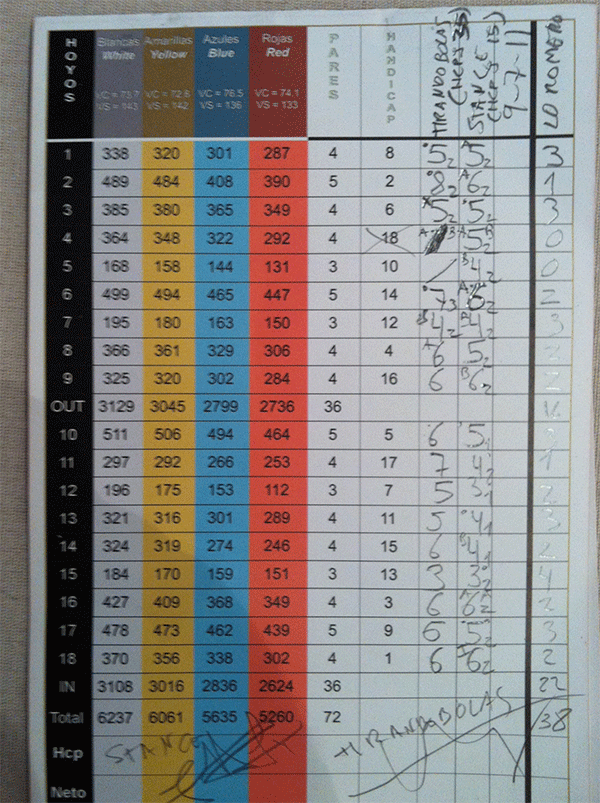 HOYOS Blancas White VC = 73.7 VS = 143 Amarillas Yellow VC = 72.8 VS = 142 Azules Blue VC = 76.5 VS = 136 Rojas Red VC = 74.1 VS = 133 PARES HANDICAP STANCE 9-7-11 LD ROMERO
1 338 320 301 287 4 8 5 2 5 2 3
2 489 484 408 390 5 2 8 2 A 6 2 1
3 385 380 365 349 4 6 5 2 5 2 3
4 364 348 322 292 4 18 5 2 0
5 168 158 144 131 3 10 4 2 0
6 499 494 465 447 5 14 7 3 2
7 195 180 163 150 3 12 4 2 4 2 3
8 366 361 329 306 4 4 6 5 2 2
9 325 320 302 284 4 16 6 B 6 2 2
OUT 3129 3045 2799 2736 36
10 511 506 494 464 5 5 6 5 1
11 297 292 266 253 4 17 7 4 2 1
12 196 175 153 112 3 7 5 3 1 2
13 321 316 301 289 4 11 5 4 1 3
14 324 319 274 246 4 15 6 B 4 1 2
15 184 170 159 151 3 13 3 3 2 4
16 427 409 368 349 4 3 6 2
17 478 473 462 439 5 9 6 5 2 3
18 370 356 338 302 4 1 6 6 2 2
IN 3108 3016 2836 2624 36 22
Total 6237 6061 5635 5260 72 38
Hcp STANCE
Neto